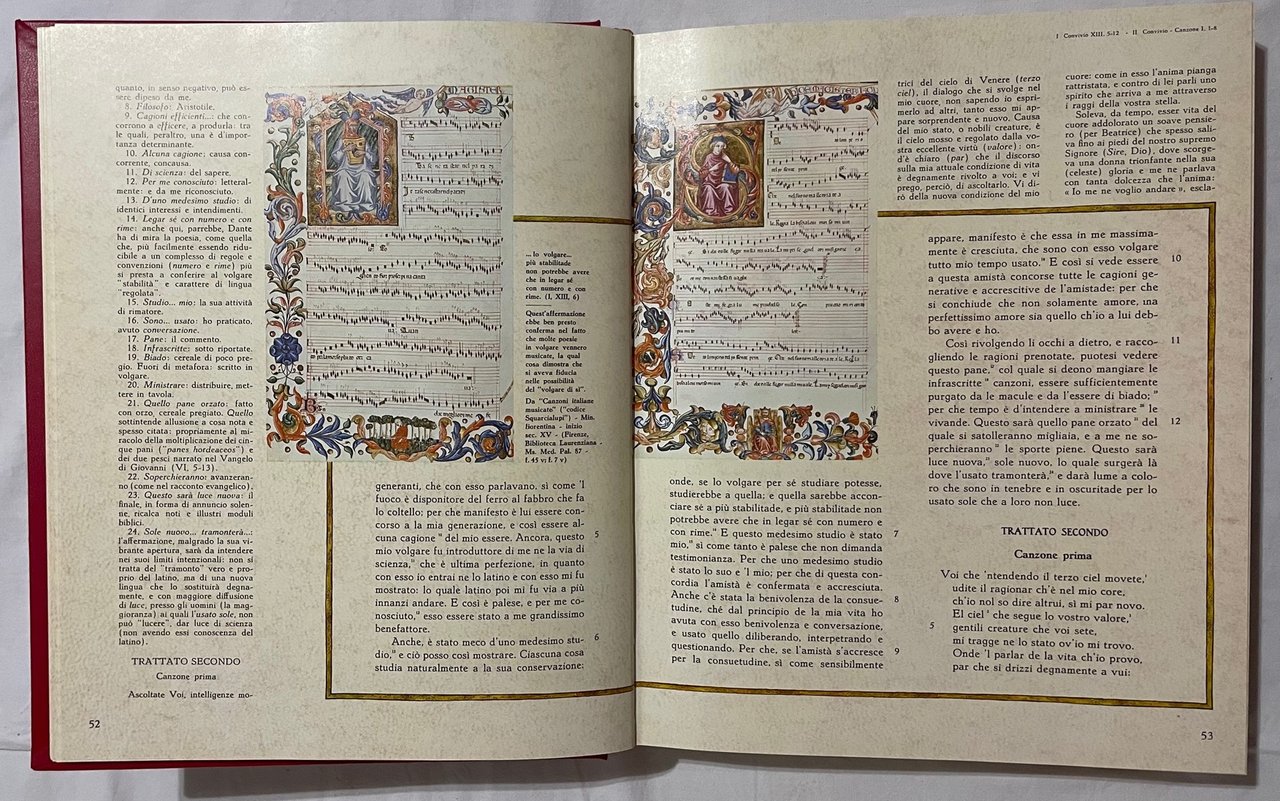 quanto, in senso negativo, può es-
sere dipeso da me.
8. Filosofo: Aristotile.
9. Cagioni efficienti...: che con-
corrono a efficere, a produrla: tra
le quali, peraltro, una è d'impor-
tanza determinante.
10. Alcuna cagione: causa con-
corrente, concausa.
11. Di scienza: del sapere.
12. Per me conosciuto: letteral-
mente: e da me riconosciuto.
13. D'uno medesimo studio: di
identici interessi e intendimenti.
14. Legar sé con numero e con
rime: anche qui, parrebbe, Dante
ha di mira la poesia, come quella
che, più facilmente essendo ridu-
cibile a un complesso di regole e
convenzioni (numero e rime) più
si presta a conferire al volgare
"stabilità" e carattere di lingua
"regolata".
15. Studio... mio: la sua attività
di rimatore.
16. Sono... usato: ho praticato,
avuto conversazione.
17. Pane: il commento.
18. Infrascritte: sotto riportate.
19. Biado: cereale di poco pre-
gio. Fuori di metafora: scritto in
volgare.
20. Ministrare: distribuire, met-
tere in tavola.
21. Quello pane orzato: fatto
con orzo, cereale pregiato. Quello
sottintende allusione a cosa nota e
spesso citata: propriamente al mi-
racolo della moltiplicazione dei cin-
que pani ("panes hordeaceos") e
dei due pesci narrato nel Vangelo
di Giovanni (VI, 5-13).
22. Soperchieranno: avanzeran-
no (come nel racconto evangelico).
23. Questo sarà luce nuova: il
finale, in forma di annuncio solen-
ne, ricalca noti e illustri moduli
biblici.
24. Sole nuovo... tramonterà...:
l'affermazione, malgrado la sua vi-
brante apertura, sarà da intendere
nei suoi limiti intenzionali: non si
tratta del "tramonto" vero e pro-
prio del latino, ma di una nuova
lingua che lo sostituirà degna-
mente, e con maggiore diffusione
di luce, presso gli uomini (la mag-
gioranza) ai quali l'usato sole, non
può "lucere", dar luce di scienza
(non avendo essi conoscenza del
latino).
TRATTATO SECONDO
Canzone prima
Ascoltate Voi, intelligenze mo-
52
MAGISTER
... lo volgare...
più stabilitade
non potrebbe avere
che in legar sé
con numero e con
rime. (I, XIII, 6)
Quest'affermazione
ebbe ben presto
conferma nel fatto
che molte poesie
in volgare vennero
musicate, la qual
cosa dimostra che
si aveva fiducia
nelle possibilità
del "volgare di sì".
Da "Canzoni italiane
musicate" ("codice
Squarcialupi") - Min.
fiorentina - inizio
sec. XV - (Firenze,
Biblioteca Laurenziana -
Ma. Med. Pal. 87 -
f. 45 v; f. 7 v)
generanti, che con esso parlavano, sì come 'l
fuoco è disponitore del ferro al fabbro che fa
lo coltello; per che manifesto è lui essere con-
corso a la mia generazione, e così essere al-
cuna cagione 10 del mio essere. Ancora, questo 5
mio volgare fu introduttore di me ne la via di
scienza, 11 che è ultima perfezione, in quanto
con esso io entrai ne lo latino e con esso mi fu
mostrato: lo quale latino poi mi fu via a più
innanzi andare. E così è palese, e per me co-
nosciuto, 12 esso essere stato a me grandissimo
benefattore.
Anche, è stato meco d'uno medesimo stu- 6
dio, 13 e ciò posso così mostrare. Ciascuna cosa
studia naturalmente a la sua conservazione:
I Convivio XIII, 5-12 - II Convivio - Canzone I, 1-8
trici del cielo di Venere (terzo
ciel), il dialogo che si svolge nel
mio cuore, non sapendo io espri-
merlo ad altri, tanto esso mi ap-
pare sorprendente e nuovo. Causa
del mio stato, o nobili creature, è
il cielo mosso e regolato dalla vo-
stra eccellente virtù (valore): on-
d'è chiaro (par) che il discorso
sulla mia attuale condizione di vita
è degnamente rivolto a voi; e vi
prego, perciò, di ascoltarlo. Vi di-
rò della nuova condizione del mio
cuore: come in esso l'anima pianga
rattristata, e contro di lei parli uno
spirito che arriva a me attraverso
i raggi della vostra stella.
Soleva, da tempo, esser vita del
cuore addolorato un soave pensie-
ro (per Beatrice) che spesso sali-
va fino ai piedi del nostro supremo
Signore (Sire, Dio), dove scorge-
va una donna trionfante nella sua
(celeste) gloria e me ne parlava
con tanta dolcezza che l'anima:
« Io me ne voglio andare », escla-
onde, se lo volgare per sé studiare potesse,
studierebbe a quella; e quella sarebbe accon-
ciare sè a più stabilitade, e più stabilitade non
potrebbe avere che in legar sé con numero e
con rime. 14 E questo medesimo studio è stato 7
mio, 15 sì come tanto è palese che non dimanda
testimonianza. Per che uno medesimo studio
è stato lo suo e 'l mio; per che di questa con-
cordia l'amistà è confermata e accresciuta.
Anche c'è stata la benivolenza de la consue- 8
tudine, ché dal principio de la mia vita ho
avuta con esso benivolenza e conversazione,
e usato quello diliberando, interpetrando e
questionando. Per che, se l'amistà s'accresce 9
per la consuetudine, sì come sensibilmente
appare, manifesto è che essa in me massima-
mente è cresciuta, che sono con esso volgare
tutto mio tempo usato. 16 E così si vede essere 10
a questa amistà concorse tutte le cagioni ge-
nerative e accrescitive de l'amistade: per che
si conchiude che non solamente amore, ma
perfettissimo amore sia quello ch'io a lui deb-
bo avere e ho.
Così rivolgendo li occhi a dietro, e racco- 11
gliendo le ragioni prenotate, puotesi vedere
questo pane, 17 col quale si deono mangiare le
infrascritte 18 canzoni, essere sufficientemente
purgato da le macule e da l'essere di biado; 19
per che tempo è d'intendere a ministrare 20 le
vivande. Questo sarà quello pane orzato 21 del 12
quale si satolleranno migliaia, e a me ne so-
perchieranno 22 le sporte piene. Questo sarà
luce nuova, 23 sole nuovo, lo quale surgerà là
dove l'usato tramonterà, 24 e darà lume a colo-
ro che sono in tenebre e in oscuritade per lo
usato sole che a loro non luce.
TRATTATO SECONDO
Canzone prima
Voi che 'ntendendo il terzo ciel movete, 1
udite il ragionar ch'è nel mio core,
ch'io nol so dire altrui, sì mi par novo.
El ciel 2 che segue lo vostro valore, 3
5 gentili creature che voi sete,
mi tragge ne lo stato ov'io mi trovo.
Onde 'l parlar de la vita ch'io provo,
par che si drizzi degnamente a vui:
53